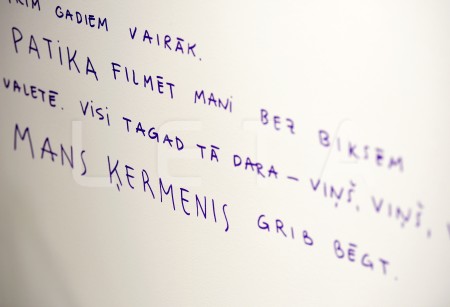 GADIEM VAIRĀK.
PATIKA FILMĒT MANI BEZ BIKSĒM
VALETĒ. VISI TAGAD TĀ DARA – VIŅŠ, VIŅŠ,
MANS ĶERMENIS GRIB BĒGT.
LETA